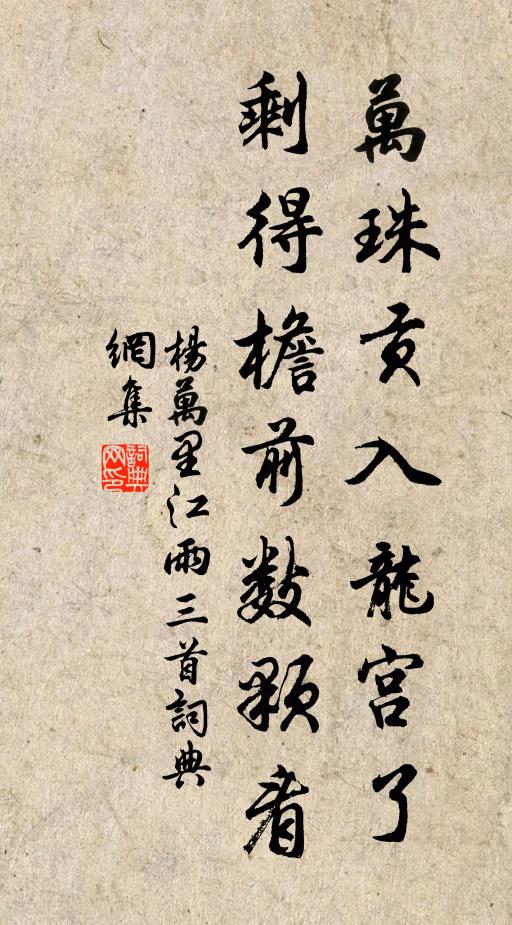 萬珠貢入龍宮了
剩得檐前數顆看
楊萬里江雨三首詞典
網集
詞典網印